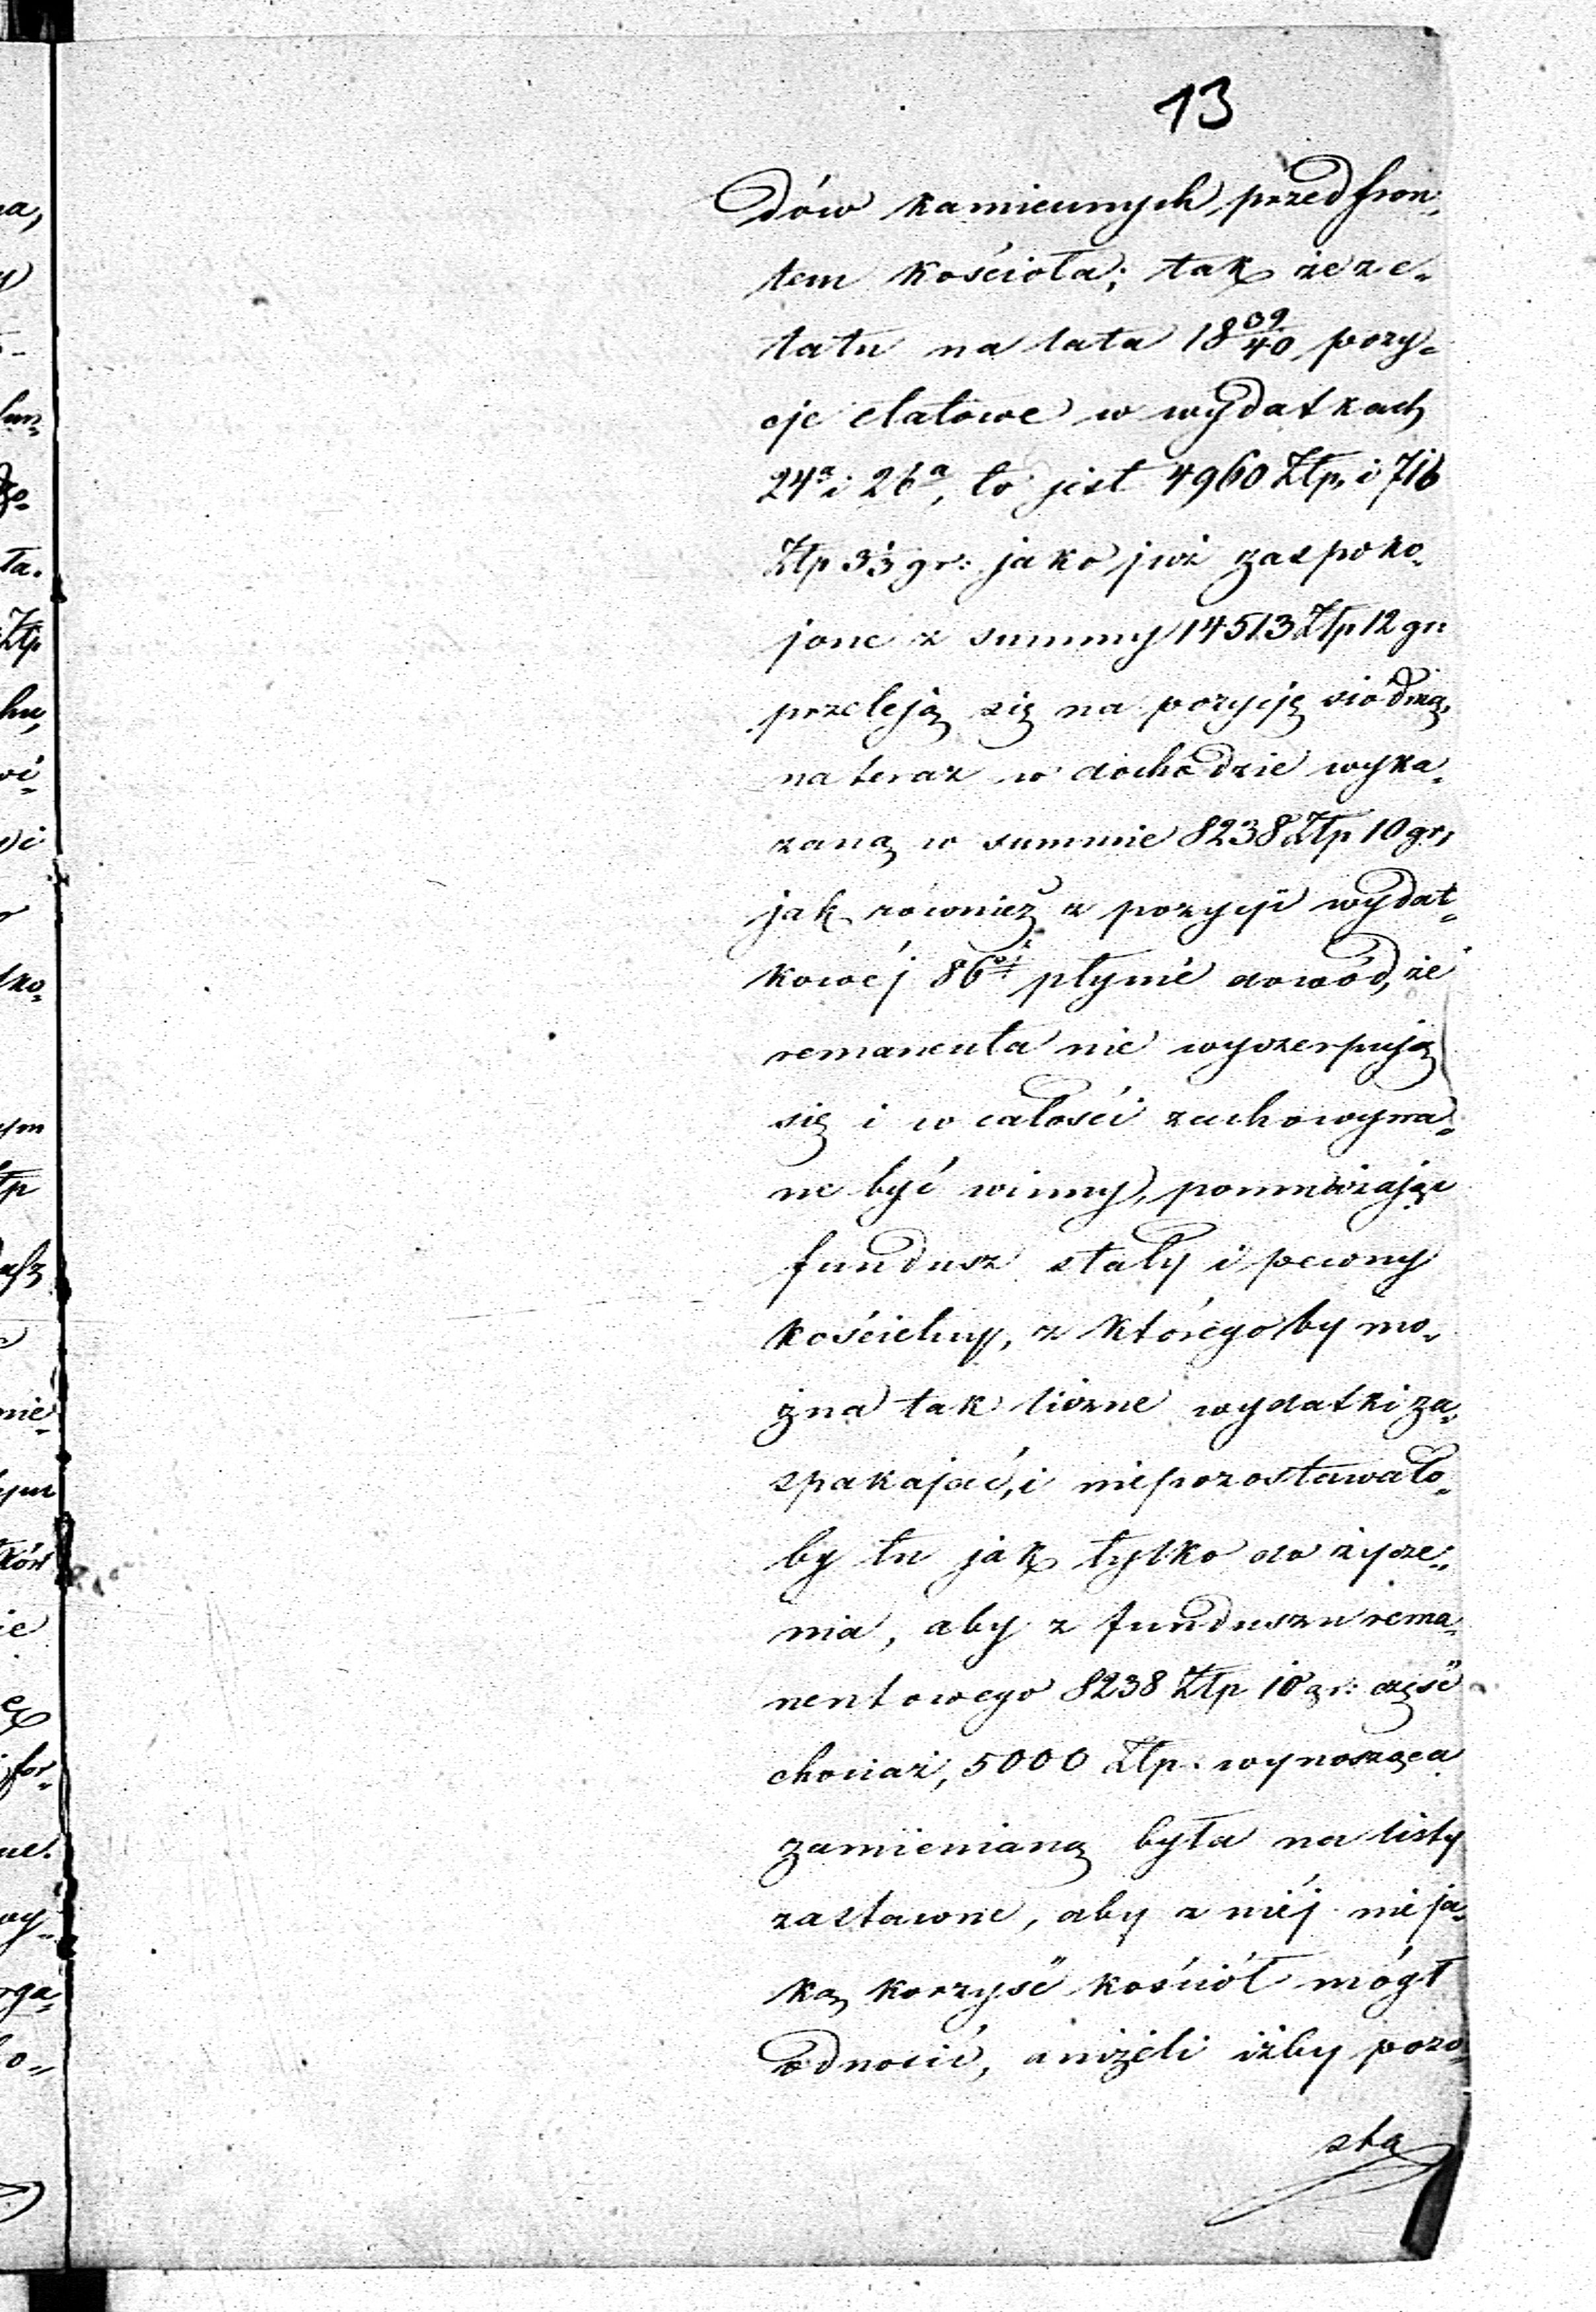 13
dów kamiennych przed fron„
tem kościoła; tak że z e„
tatu na lata 18 39/40 pozy„
cje etatowe w wydatkach
24ª i 26ª, to jest 4960 Złp. i 716
Złp 3⅓ gr: jako już zaspoko„
jone z summy 14513 Złp 12 gr:
przeleją się na pozycję siódmą,
na teraz w dochodzie wyka„
zaną w summie 8238 Złp 10 gr,
jak również z pozycji wydat„
kowéj 86éj płynie dowód, że
remanenta nie wyczerpują
się i w całości zachowywa„
ne być winny, pomnażając
fundusz stały i pewny
kościelny, z któregoby mo„
żna tak liczne wydatki za„
spakajać, i niepozostawało„
by tu jak tylko do życze„
nia, aby z funduszu rema„
nentowego 8238 Złp 10 gr: część
chociaż, 5000 Złp. wynosząca
zamienianą była na listy
zastawne, aby z niéj nieja„
ką korzyść kościół mógł
odnosić, aniżeli iżby pozo„
sta